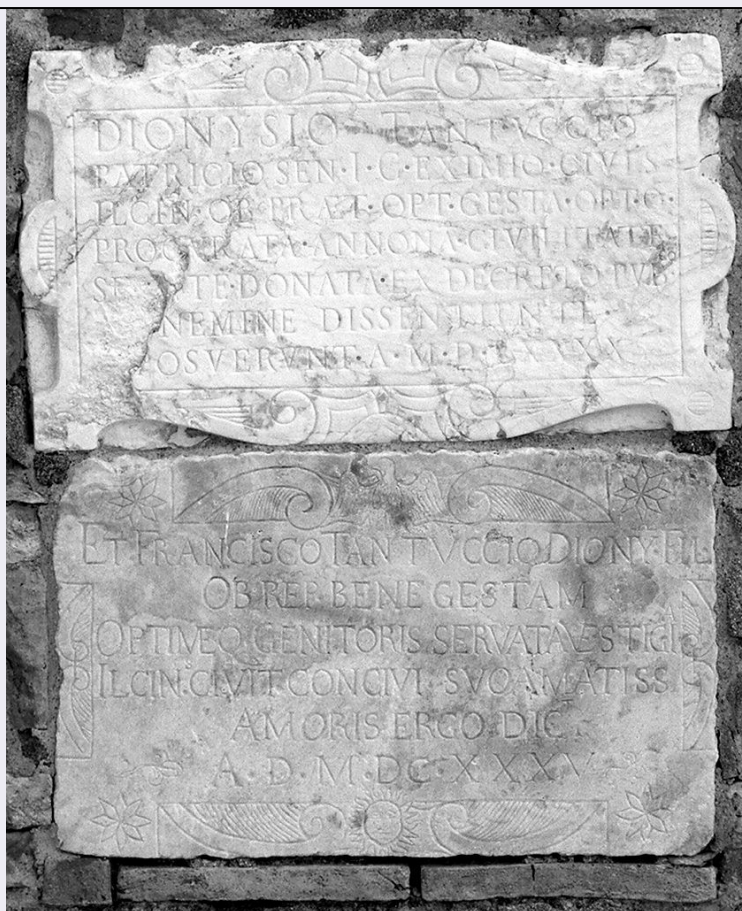 DIONYSIO TANTVCCIO
PATRICIO SEN·I·C·EXIMIO·CIVIS
ILCIN·OB·PRÆT·OPT·GESTA·OPT·Q·
PROCVRATA·ANNONA·CIVILITATE
TE·DONATA·EX DECRETO PVB·
NEMINE DISSENTIENTE·
OSVERVNT·A·M·D·LXXXX
ET FRANCISCO TANTVCCIO DIONY·FIL
OB REP·BENE GESTAM
OPTIMEQ·GENITORIS SERVATA VESTIGI
ILCIN·CIVIT·CONCIVI SVO AMATISS
AMORIS ERGO·DIC
A·D·M·DC·XXXXV